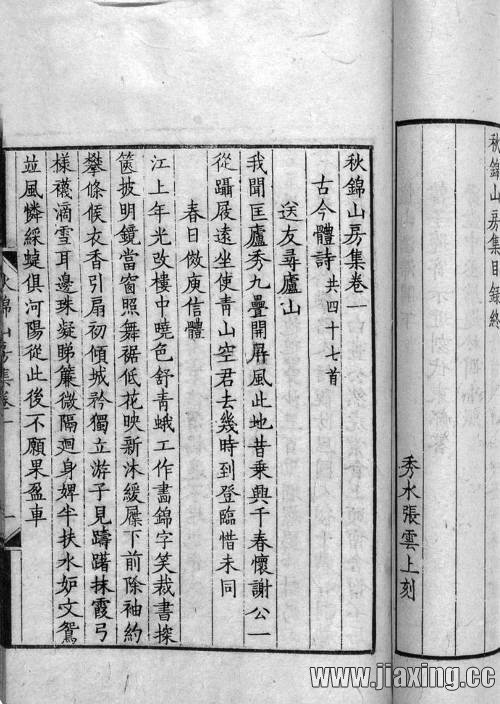 秋錦山房集目錄終
秀水張雲上刻
秋錦山房集卷一
古今體詩共四十七首
送友尋廬山
我聞匡廬秀九疊開屏風此地昔乘興千春懷謝公一
從躡屐遠坐使青山空君去幾時到登臨惜未同
春日倣庾信體
江上年光改樓中曉色舒青蛾工作畫錦字笑裁書探
篋披明鏡當窗照舞裾低花映新沐緩屧下前除袖約
攀條候衣香引扇初傾城矜獨立游子見躊躇抹霞弓
樣襪滴雪耳邊珠凝睇簾微隔迴身婢半扶水妒文鴛
並風憐綵蜨俱河陽從此後不願果盈車
秋錦山房集卷一
一
www.jiaxing.cc